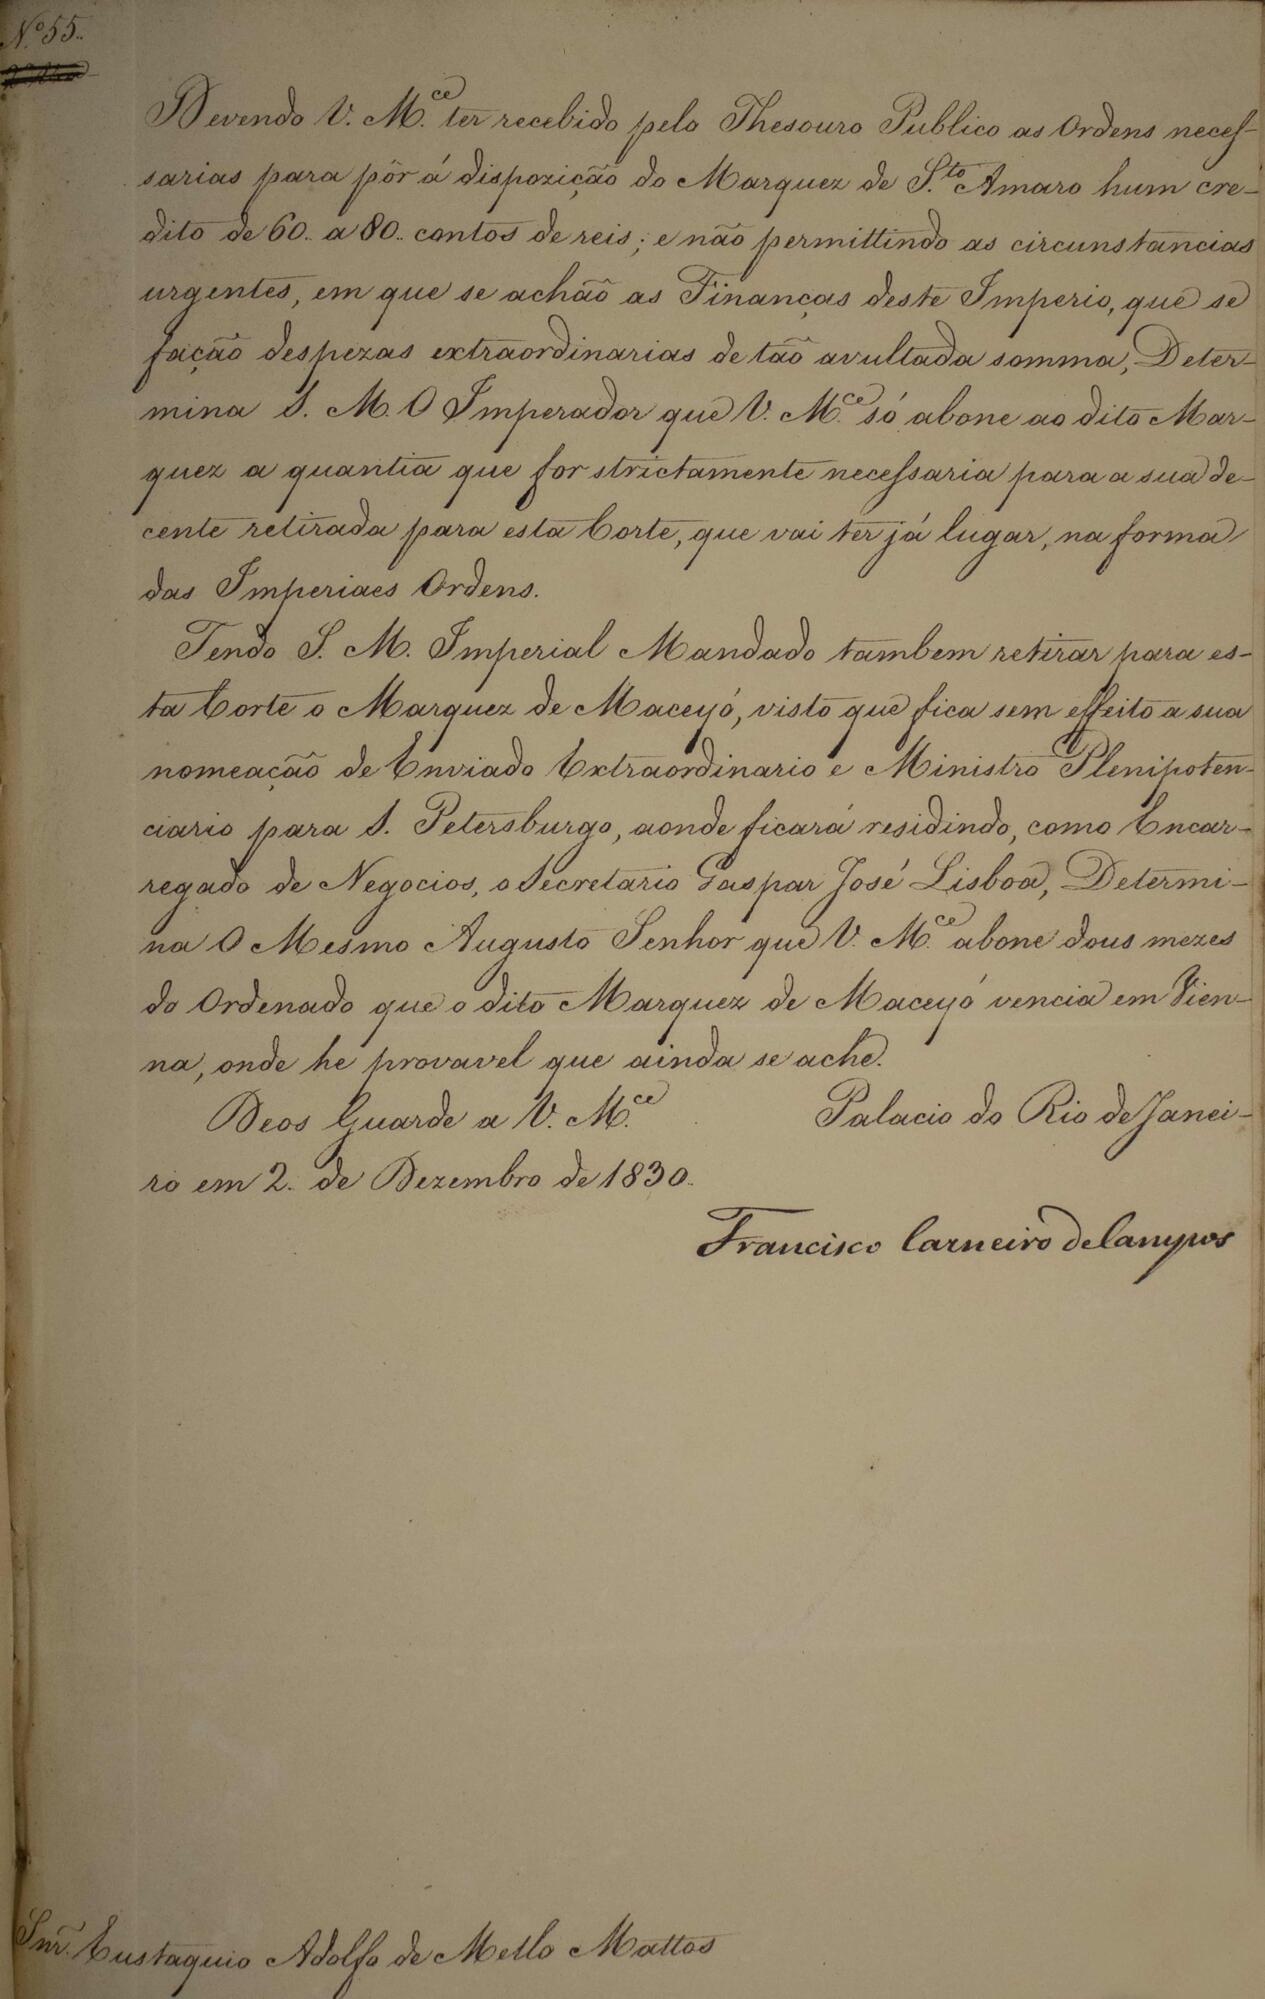 Nº 55.
Devendo V. M.ce ter recebido pelo Thesouro Publico as Ordens neces-
sarias para pôr á dispozição do Marquez de S.to Amaro hum cre-
dito de 60.. a 80.. contos de reis; e não permittindo as circunstancias
urgentes, em que se achão as Finanças deste Imperio, que se
fação despezas extraordinarias de tão avultada somma, Deter-
mina S. M. O Imperador que V. M.ce só abone ao dito Mar-
quez a quantia que for strictamente necessaria para a sua de-
cente retirada para esta Corte, que vai ter já lugar, na forma
das Imperiaes Ordens.
Tendo S. M. Imperial Mandado tambem retirar para es-
ta Corte o Marquez de Maceyó, visto que fica sem effeito a sua
nomeação de Enviado Extraordinario e Ministro Plenipoten-
ciario para S. Petersburgo, aonde ficará residindo, como Encar-
regado de Negocios, o Secretario Gaspar José Lisboa, Determi-
na O Mesmo Augusto Senhor que V. M.ce abone dous mezes
do Ordenado que o dito Marquez de Maceyó vencia em Vien-
na, onde he provavel que ainda se ache.
Deos Guarde a V. M.ce Palacio do Rio de Janei-
ro em 2. de Dezembro de 1830.
Francisco Carneiro de Campos
Snr. Eustaquio Adolfo de Mello Mattos